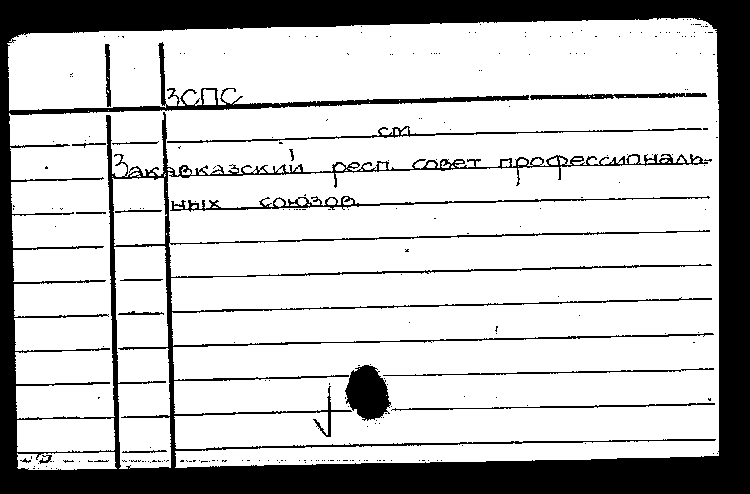 ЗСПС
см
Закавказский респ. совет профессиональ-
ных союзов.